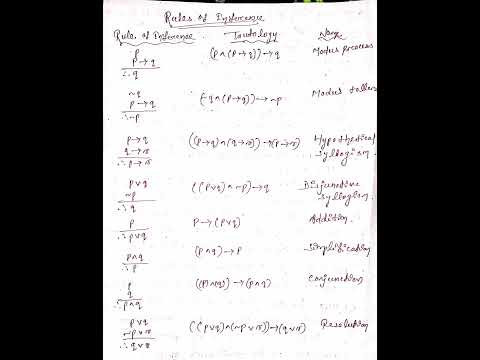 Rules of Inference
Rule of Inference Tautology Name
p
p → q
∴ q
(p ∧ (p → q)) → q
Modus ponens
~q
p → q
∴ ~p
(~q ∧ (p → q)) → ~p
Modus tollens
p → q
q → r
∴ p → r
((p → q) ∧ (q → r)) → (p → r)
Hypothetical
syllogism
p ∨ q
~p
∴ q
((p ∨ q) ∧ ~p) → q
Disjunctive
syllogism
p
∴ p ∨ q
p → (p ∨ q)
Addition
p ∧ q
∴ p
(p ∧ q) → p
Simplification
p
q
∴ p ∧ q
((p) ∧ q) → (p ∧ q)
Conjunction
p ∨ q
~p ∨ r
∴ q ∨ r
((p ∨ q) ∧ (~p ∨ r)) → (q ∨ r)
Resolution